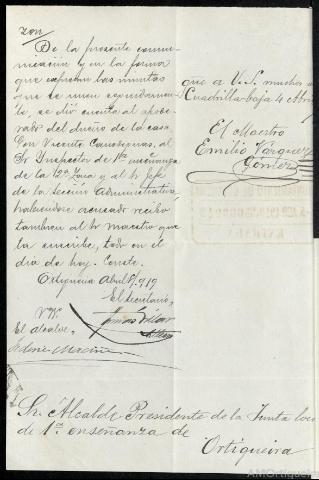 zón
De la presente comu-
nicación y en la forma
que expresan las minutas
que se unen
to, se dió cuenta al apode-
rado del dueño de la casa
Don Vicente al
Sr Inspector de 1ª enseñanza
de la 12ª Zona y al Sr Jefe
de la Sección Administrativa,
habiéndose acusado recibo
tambien al Sr maestro que
la suscribe, todo en el
dia de hoy. Conste.
Ortigueira Abril 8/919
El secretario,
Vº Bº
El alcalde,
que a V.S. muchos a
Cuadrilla baja 4 Abri
El Maestro
Emilio Vázquez
Gómez
Sr. Alcalde Presidente de la Junta loca
de 1ª enseñanza de
Ortigueira
AMOrtigueira